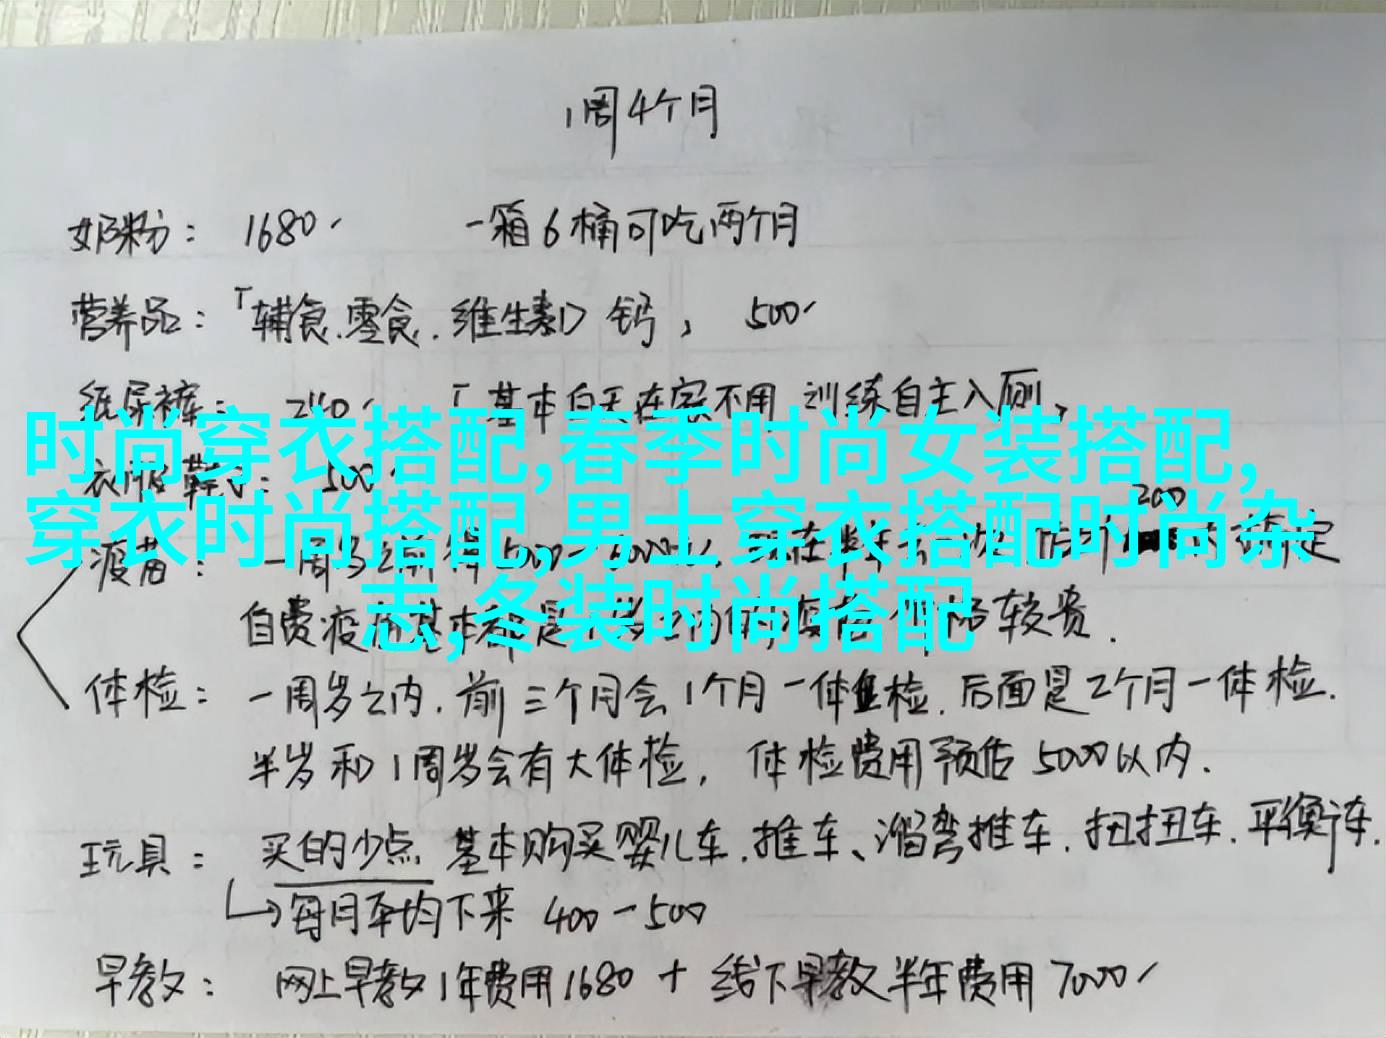 1周4个月
奶粉： 1680、 一箱6桶可吃两个月
营养品：「辅食.零食.维生素D 钙， 500、
纸尿裤： 240、 「基本白天在家不用 训练自主入厕，
时尚穿衣搭配,春季时尚女装搭配,
衣服鞋子： 500
200
穿衣时尚搭配,男士穿衣搭配时尚杂
疫苗： 一周岁之前 定
志,冬装时尚搭配
自费疫苗基本都是 较贵.
体检： 一周岁之内.前三个月会1个月一体检.后面是2个月一体检.
半岁和1周岁会有大体检， 体检费用预估5000以内.
玩具： 买的少点 基本购买婴儿车.推车、溜弯推车.扭扭车.平衡车.
每月平均下来 400-500
早教： 网上早教1年费用1680 + 线下早教半年费用7000、